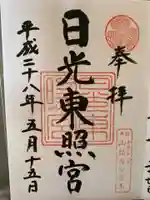 奉拝
日光東照宮
平成二十八年五月十五日